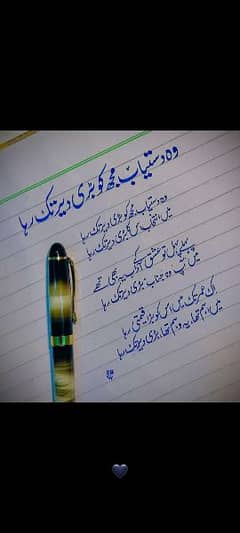 وہ دستیاب مجھ کو بڑی دیر تک رہا
وہ دستیاب مجھ کو بڑی دیر تک رہا
میں انتخاب اس کا بڑی دیر تک رہا
پہلے پہل تو عشق کے آداب یہ بھی تھے
میں آپ وہ جناب بڑی دیر تک رہا
اک عمر تک میں اس کو بڑا قیمتی رہا
میں اہم تھا، یہ وہم تھا، بڑی دیر تک رہا